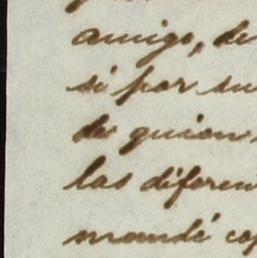 amigo, de
si por su
de quien
las diferen
mandé cop